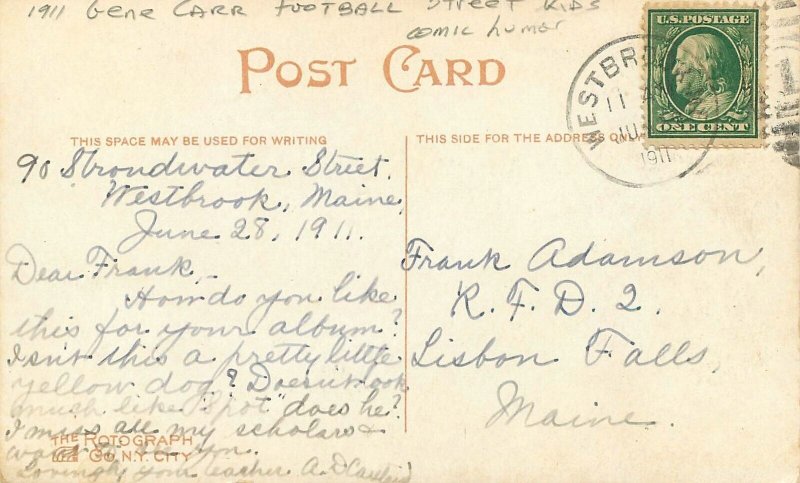 1911 Gene Carr Football Street Kids
comic humor
POST CARD
U.S. POSTAGE
ONE CENT
WESTBR
11 A
JU
1911
THIS SPACE MAY BE USED FOR WRITING
THIS SIDE FOR THE ADDRESS ONLY
90 Strondwater Street.
Westbrook, Maine,
June 28, 1911.
Dear Frank,-
How do you like
this for your album?
Isn't this a pretty little
yellow dog? Doesn't look
much like "Spot" does he?
I miss all my scholars &
want to see you.
Lovingly your teacher A. D.
THE ROTOGRAPH
CO. N.Y. CITY
Frank Adamson,
R. F. D. 2.
Lisbon Falls,
Maine.